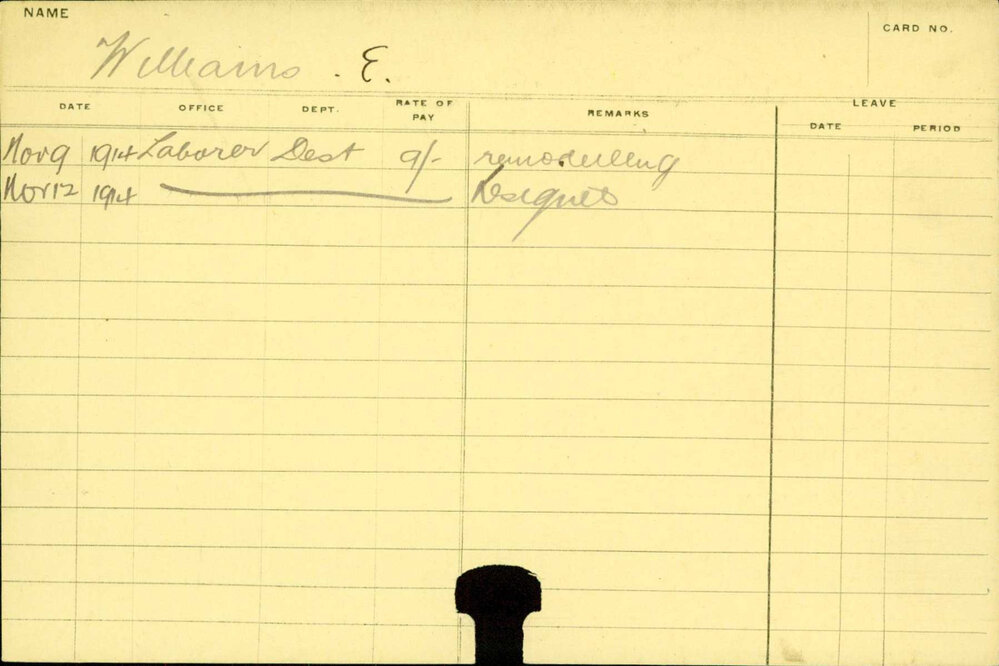 NAME
CARD NO.
Williams . E.
DATE OFFICE DEPT. RATE OF PAY REMARKS LEAVE
DATE PERIOD
Nov 9 1914 Laborer Dest 9/- remodelling
Nov 12 1914 Resigned